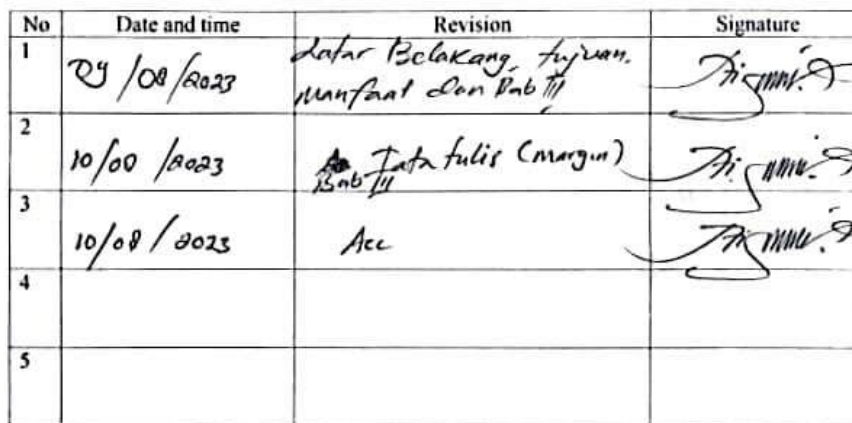 No Date and time Revision Signature
1
09/08/2023
Latar Belakang, tujuan.
Manfaat dan Bab III
2
10/08/2023
Tata tulis (margin)
Bab III
3
10/08/2023
Acc
4
5